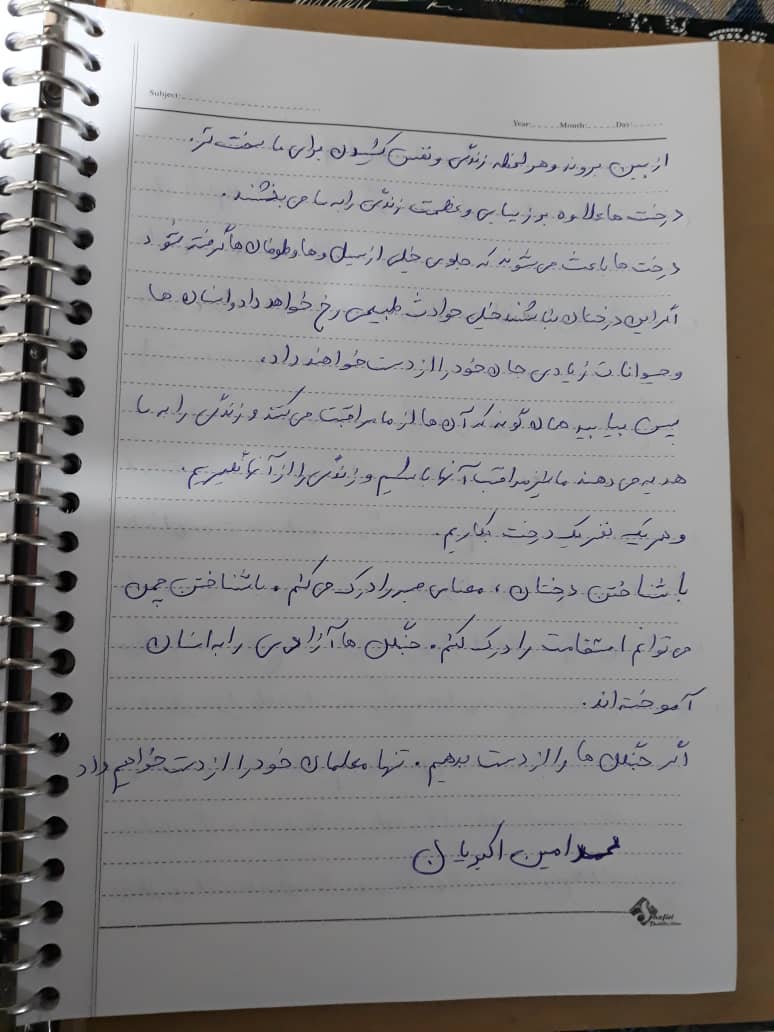 Subject:
Year: Month: Day:
از بین بروند و هر لحظه زندگی و نفس کشیدن برای ما سخت تر.
درخت ها علاوه بر زیبایی و عظمت زندگی را به ما می بخشند.
درخت ها باعث می شوند که جلوی خیلی از سیل ها و طوفان ها گرفته شود
اگر این درختان نباشند خیلی حوادث طبیعی رخ خواهد داد و انسان ها
و حیوانات زیادی جان خود را از دست خواهند داد.
پس بیایید همان گونه که آن ها از ما مراقبت می کنند و زندگی را به ما
هدیه می دهند ما نیز مراقب آنها باشیم و زندگی را از آنها نگیریم.
و هر یک نفر یک درخت بکاریم.
با شناختن درختان، معنای صبر را درک می کنم. با شناختن چمن
می توانم استقامت را درک کنم. جنگل ها آزادی را به انسان
آموخته اند.
اگر جنگل ها را از دست بدهیم. تنها معلمان خود را از دست خواهیم داد
محمد امین اکبریان